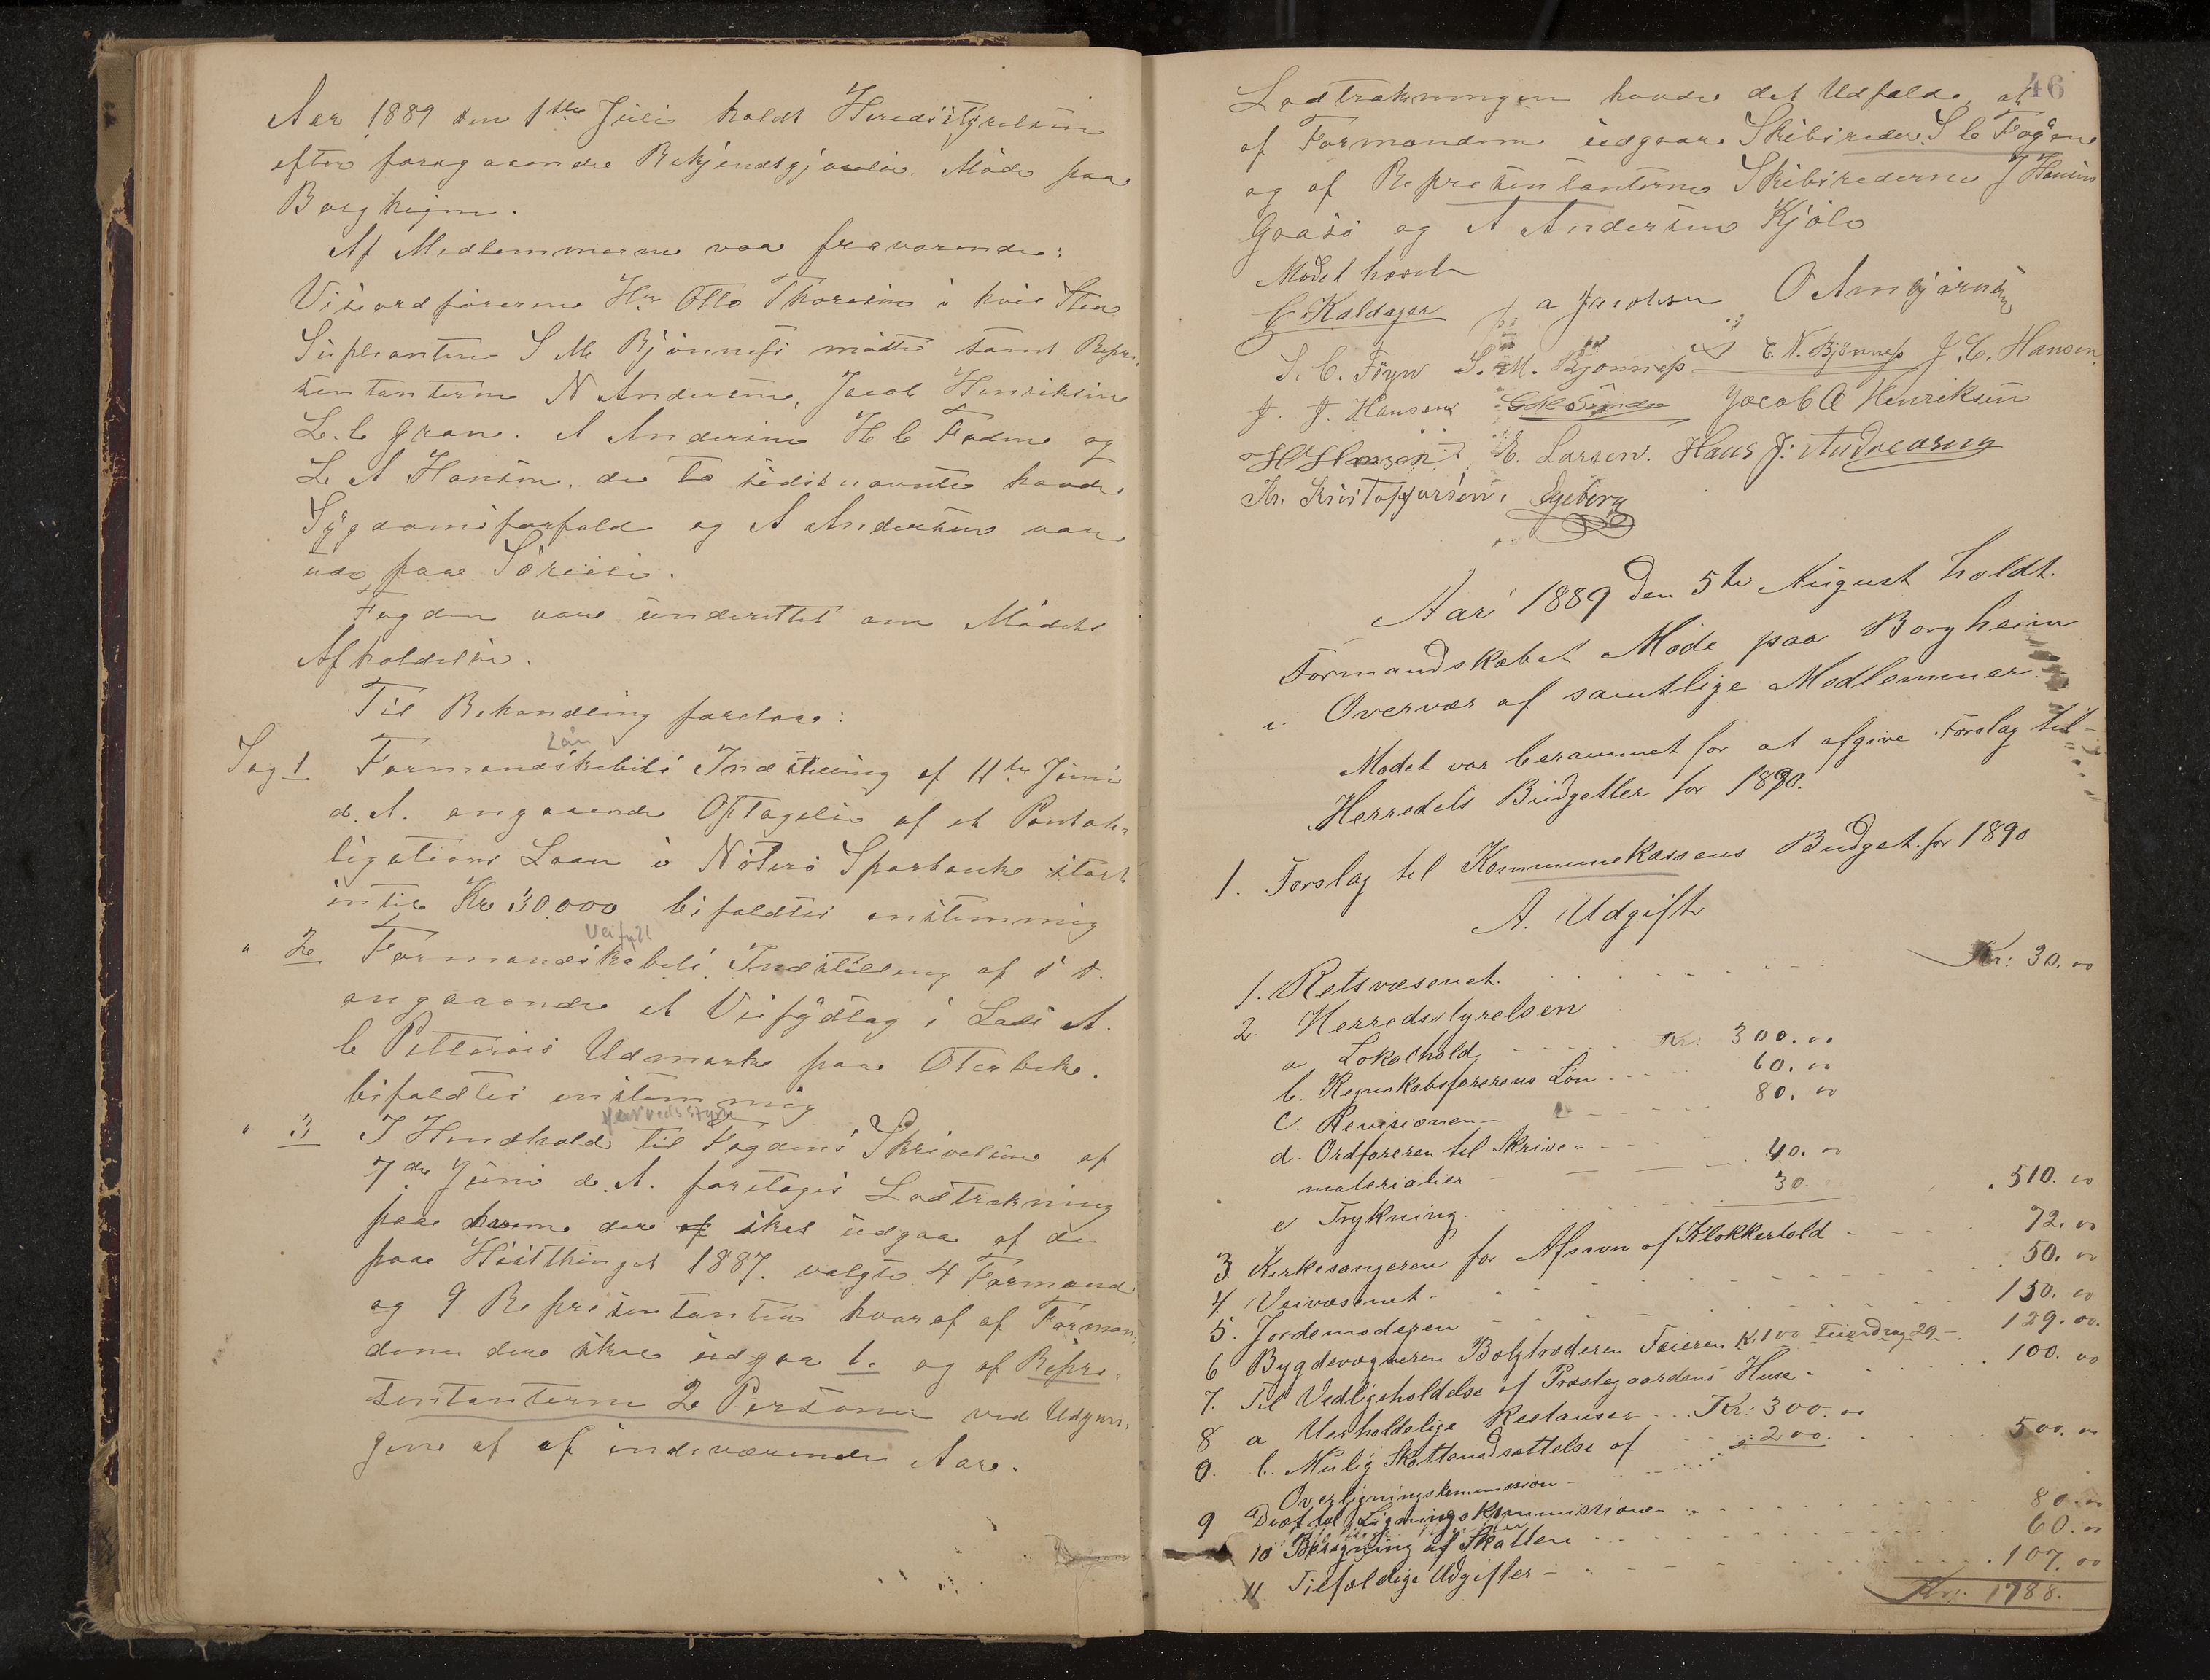 Aar 1889 den 1ste Juli holdt Heredsstyrelsen
efter foregaaende Bekjendtgjørelse Møde paa
Borgheim.
Af Medlemmerne var fraværende:
Viseordføreren Hr Otto Thoresen i hvis Sted
Supleanten S M Bjønness mødte samt Repre-
sentanterne N Andersen, Jacob Henriksen
L. C Gran. A Andersen H C Fodne og
L A Hansen, de to sidstnævnte havde
Sygdomsforfald og A Andersen var
ude paa Söreise.
Fogden var underettet om Mödets
Afholdelse.
Til Behandling foretoges:
Lån
Sag 1 Formandskabets Indstilling af 11te Juni
d. A. angaaende Optagelse af et Pantob-
ligations Laan i Nøterø Sparebank stort
indtil Kr 30.000 bifaldtes enstemmig
Veifyll
" 2 Formandskabets Indstilling af s d.
angaaende et Veifyldtag i Lods A.
C Pettersens Udmark paa Oterbek.
bifaldtes enstemmig
Herredsstyre
" 3 I Henhold til Fogdens Skrivelse af
7de Juni d. A. foretoges Lodtrækning
paa hvem der af skal udgaa af de
paa Høstthinget 1887. valgte 4 Formænd
og 9 Representanter hvoraf af Forman-
dene der skal udgaa 1. og af Repre-
sentanterne 2 Personer ved Udgan-
gen af af indeværende Aar.
46
Lodtrækningen havde det Udfald, at
af Formændene udgaar Skibsreder S C Føyen
og af Representanterne Skibsrederne J Hansen
Gaasø og A Andersen Kjøle
Mødet hævet
C Kaldager a Jacobsen O Ambjørnsen
S. C. Föyn S. M. Bjønness E. N. Bjønness J. C. Hansen.
J. J. Hansen Jacob A Henriksen
H Hansen E. Larsen. Hans J. Andreasen
Kr. Kristoffersen.
Aar 1889 den 5te August holdt.
Formandskabet Møde paa Borgheim
i Overvær af samtlige Medlemmer.
Mødet var berammet for at afgive Forslag til
Herredets Budgetter for 1890.
1. Forslag til Kommunekassens Budget for 1890
A. Udgift
1. Retsvæsenet. Kr: 30.00
2. Herredsstyrelsen
a Lokalhold Kr: 300.00
b. Regnskabsførerens Løn 60.00
c. Revisionen 80.00
d. Ordføreren til Skrive=
materialier 40.00
e Trykning. 30. 510.00
3. Kirkesangeren for Afsavn af Klokkertold 72.00
4. Veivæsenet 50.00
5. Jordemoderen 150.00
6 Bygdevægteren Bolghrøderen Feieren Kr 100 Feierdreg 29 129.00.
7. Til Vedligeholdelse af Præstegaardens Huse 100.00
8 a Uerholdelige Restanser Kr: 300.00
9. b. Mulig Skattenedsættelse af 200. 500.00
Overligningskommission
9 Diæt til Ligningskommissionen 80.00
10 Beregning af Skatten 60.00
11 Tilfældige Udgifter 107.00
Kr: 1788.